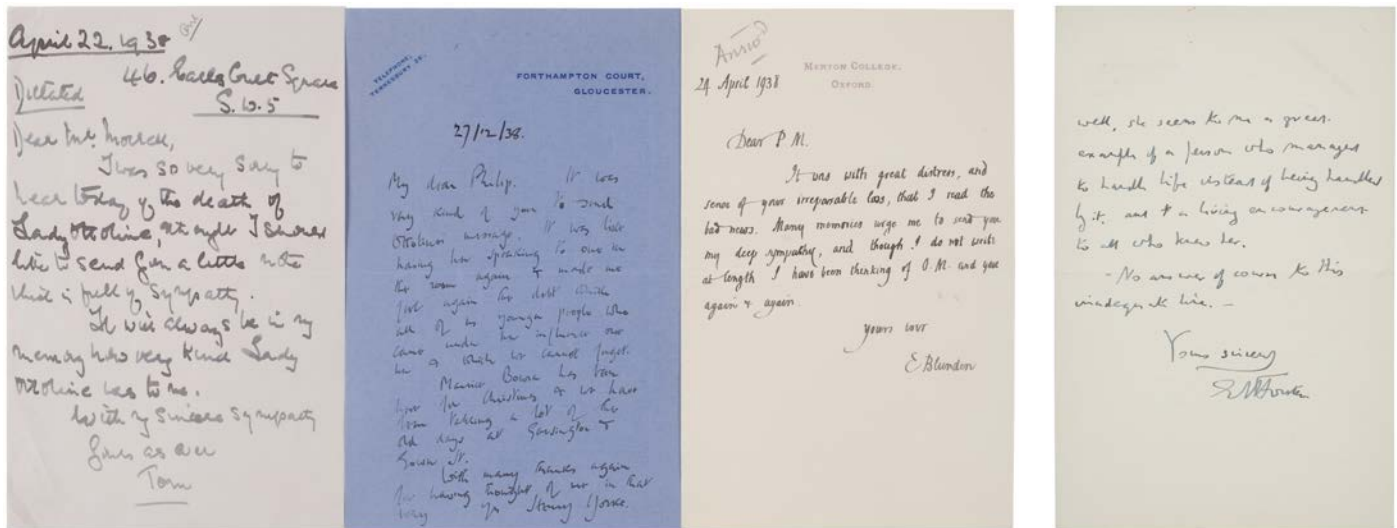 April 22. 1938
46. Earls Court Square
S.W.5
Dictated
Dear Mr. Morrell,
I was so very sorry to
hear today of the death of
Lady Ottoline, &
to send you a little note
that is full of sympathy.
It will always be in my
memory how very kind Lady
Ottoline was to me.
With my sincere sympathy
yours as ever
Tom
TELEPHONE,
TEWKESBURY 36.
FORTHAMPTON COURT,
GLOUCESTER.
27/12/38.
My dear Philip. It was
very kind of you to send
Ottoline's message. It was like
having her speaking to one in
the room again & made me
feel again the debt which
all of us younger people who
came under her influence owe
her & which we cannot forget.
Maurice Bowra has been
here for Christmas & we have
been talking a lot of the
old days at Garsington &
Gower St.
With many thanks again
for having thought of me in that
way Yrs Henry Yorke.
Ansd
MERTON COLLEGE,
OXFORD.
24 April 1938
Dear P. M.
It was with great distress, and
sense of your irreparable loss, that I read the
bad news. Many memories urge me to send you
my deep sympathy, and though I do not write
at length I have been thinking of O.M. and you
again & again.
Yours ever
E Blunden
well, she seems to me a great
example of a person who managed
to handle life instead of being handled
by it, and a living encouragement
to all who knew her.
- No answer of course to this
inadequate line. -
Yours sincerely
EMForster